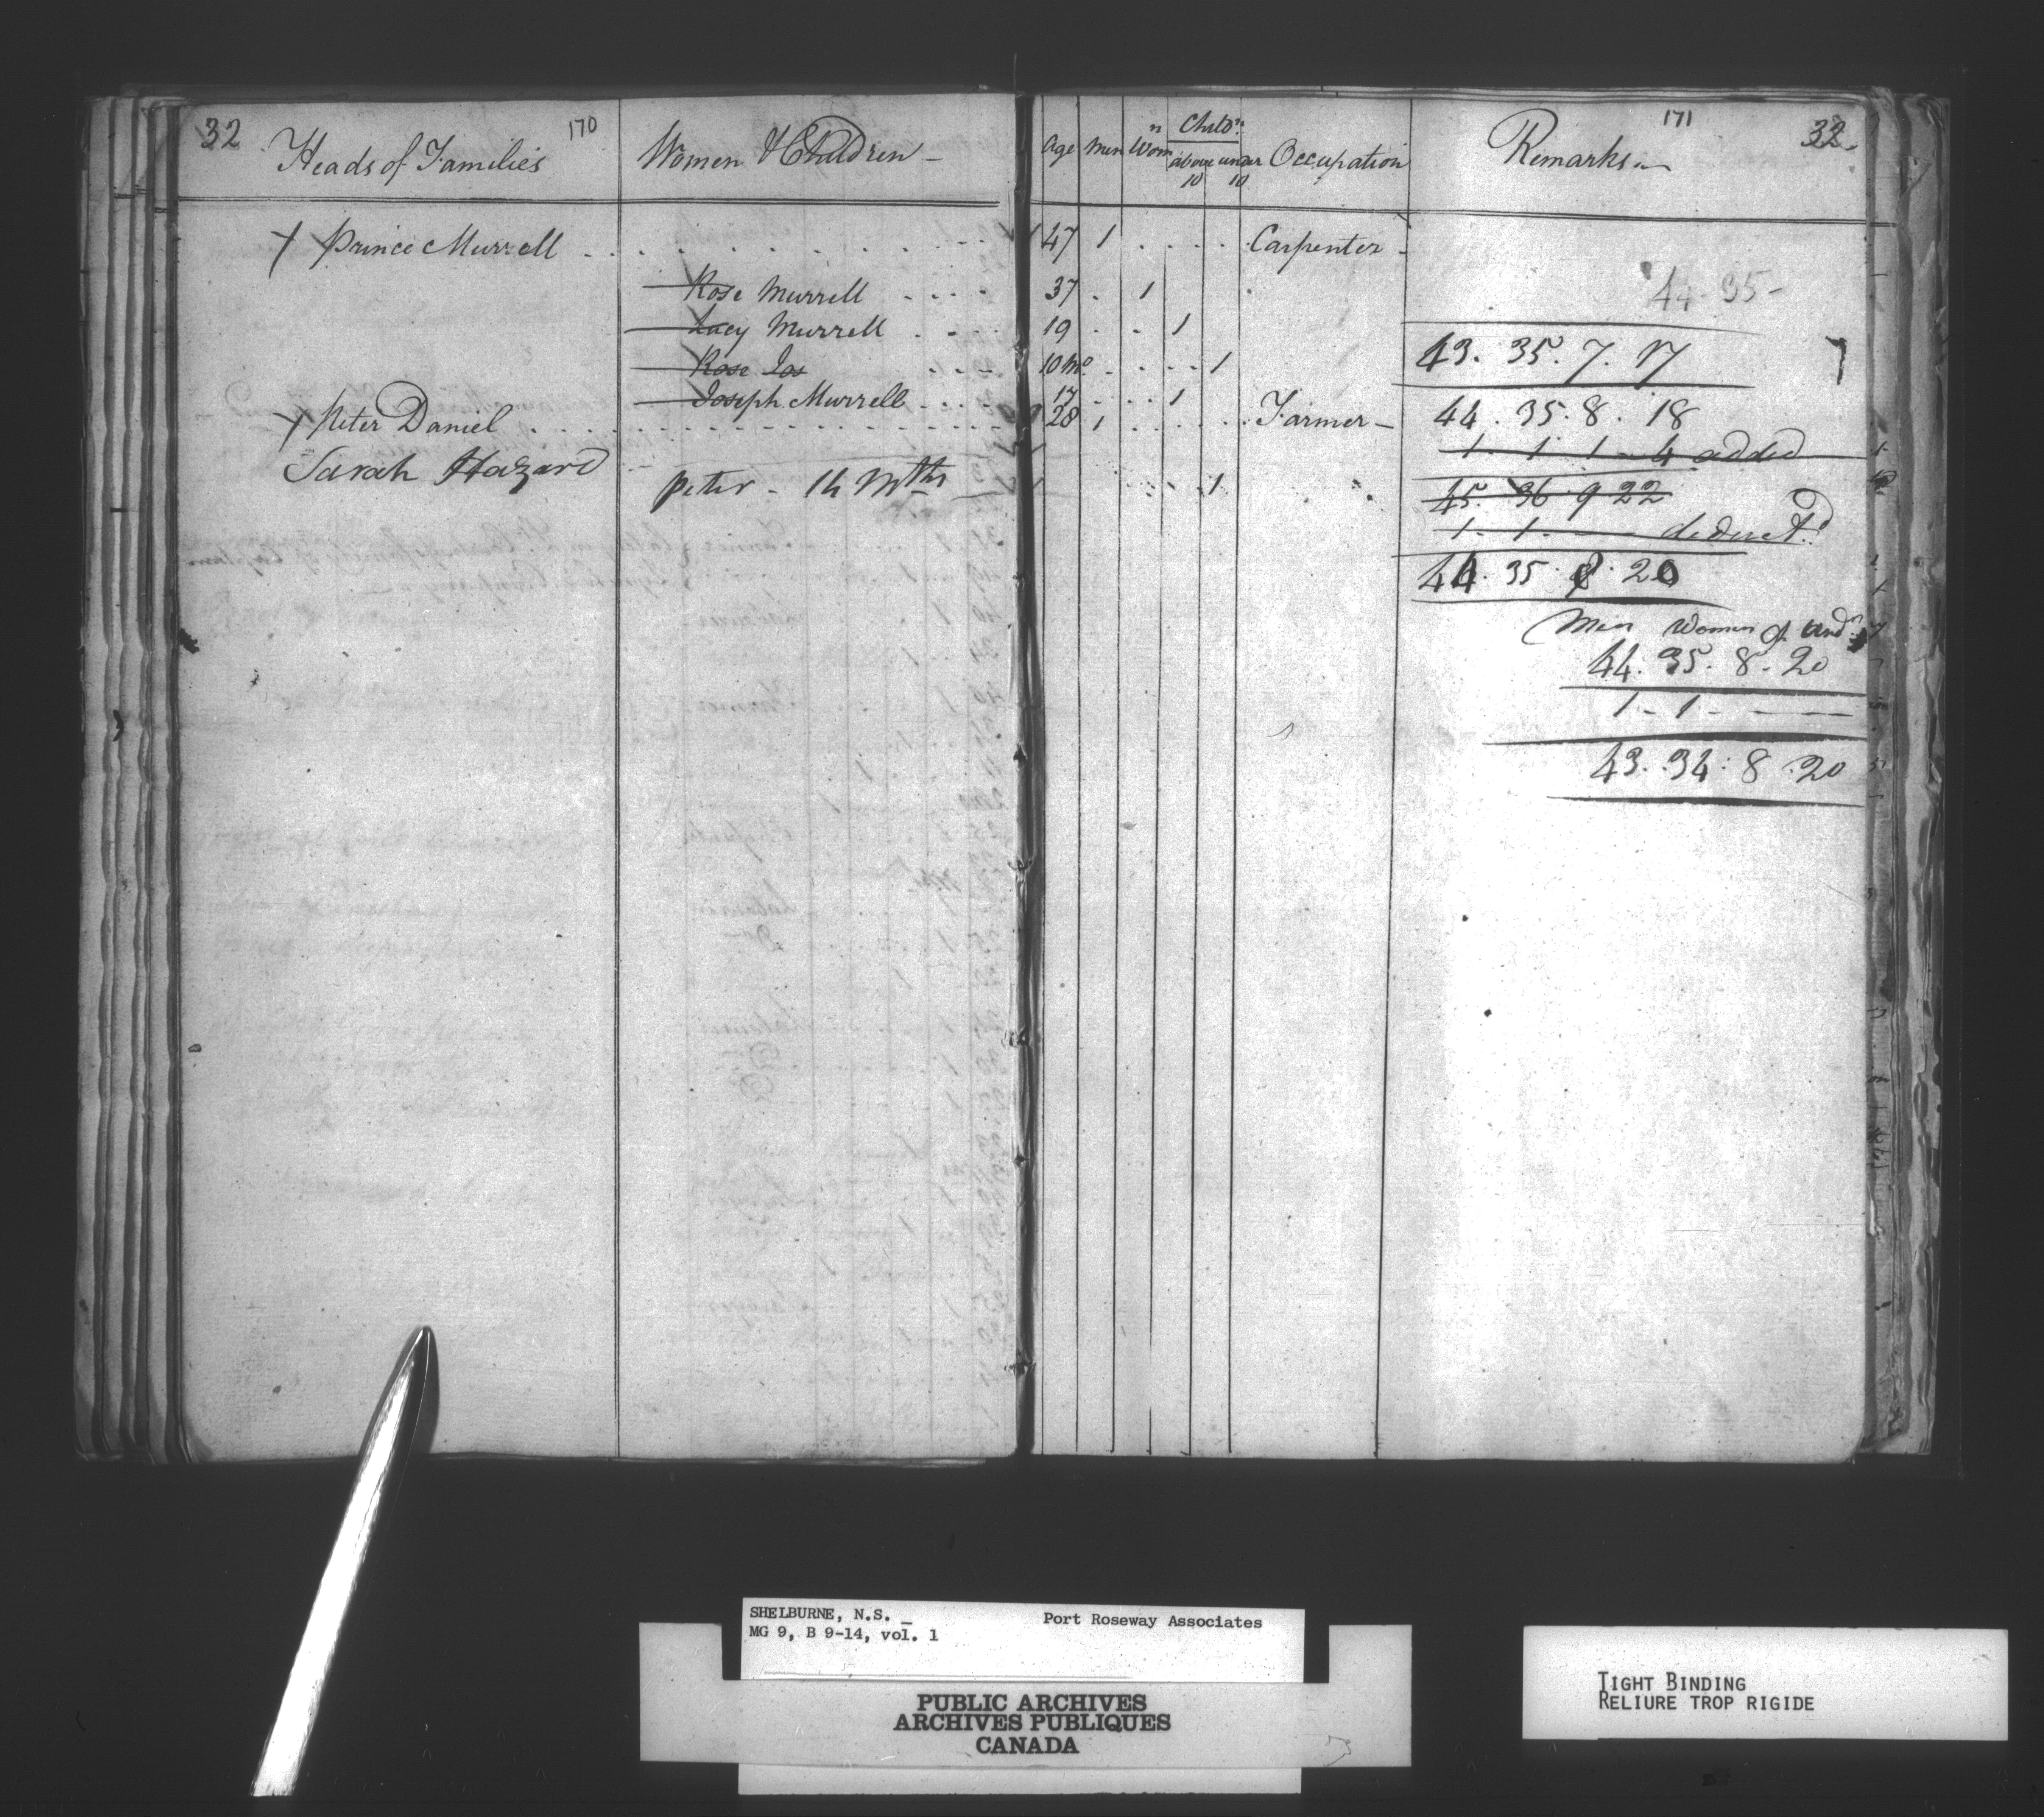 32 170 171 32
Heads of Families Women & Children - Age Men Wom n Child n: above 10 under 10 Occupation Remarks
+ Prince Murrell 47 1 Carpenter -
Rose Murrell 37 1
44 35 -
Lucy Murrell 19 1
43. 35. 7. 17
Rose Jos 10 Mo 1
Joseph Murrell 17 1
+ Peter Daniel 28 1 Farmer -
44. 35. 8. 18
1 - 1 1 - 4 added
Sarah Hazard peter - 14 Mths 1
45. 36 9 22
1 - 1 - deduct d
44. 35. 8. 20
Men Women
44. 35. 8. 20
1 - 1 -
43. 34: 8. 20
SHELBURNE, N.S. _ Port Roseway Associates
MG 9, B 9-14, vol. 1
PUBLIC ARCHIVES
ARCHIVES PUBLIQUES
CANADA
TIGHT BINDING
RELIURE TROP RIGIDE